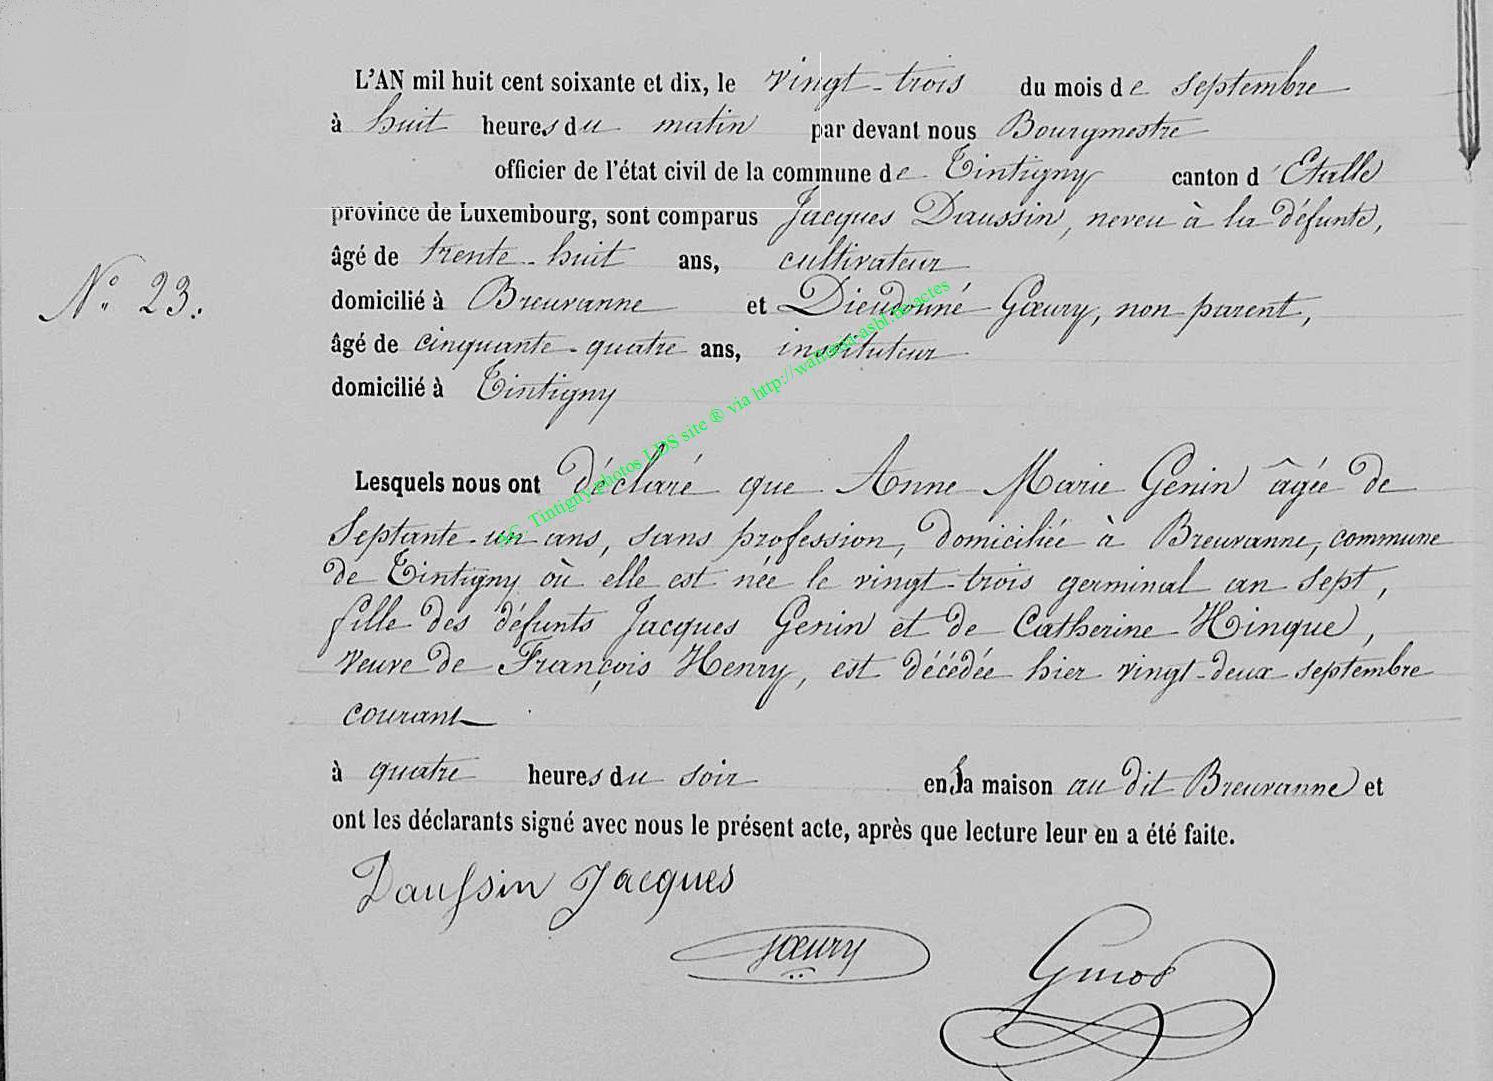 L'AN mil huit cent soixante et dix, le vingt-trois du mois de septembre
à huit heures du matin par devant nous Bourgmestre
officier de l'état civil de la commune de Tintigny canton d'Etalle
province de Luxembourg, sont comparus Jacques Daussin, neveu à la défunte,
âgé de trente-huit ans, cultivateur
N° 23.
domicilié à Breuvanne et Dieudonné Goeury, non parent,
âgé de cinquante-quatre ans, instituteur
domicilié à Tintigny
Lesquels nous ont déclaré que Anne Marie Genin âgée de
septante-un ans, sans profession, domiciliée à Breuvanne, commune
de Tintigny où elle est née le vingt-trois germinal an sept,
fille des défunts Jacques Genin et de Catherine Hinque,
veuve de François Henry, est décédée hier vingt-deux septembre
courant
à quatre heures du soir en sa maison au dit Breuvanne et
ont les déclarants signé avec nous le présent acte, après que lecture leur en a été faite.
Daussin Jacques
Goeury
Tintigny photos LDS site ® via http://